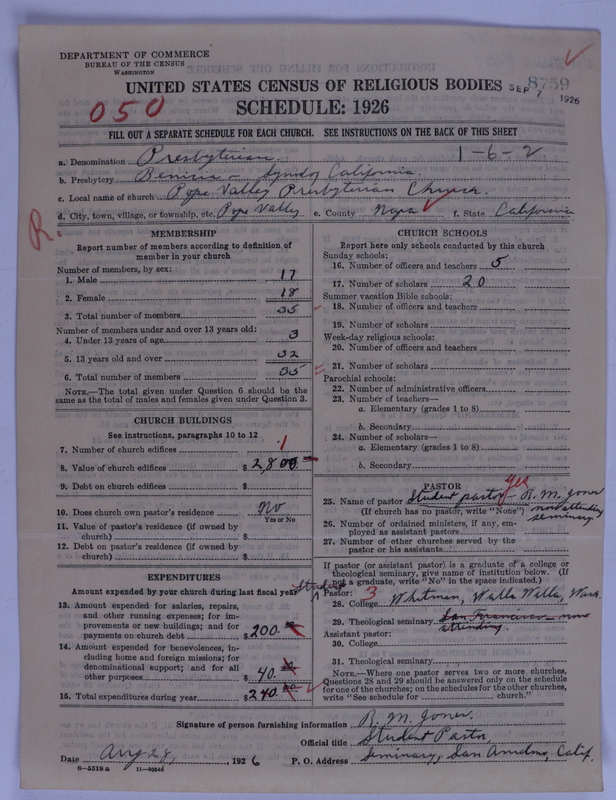 DEPARTMENT OF COMMERCE
BUREAU OF THE CENSUS
WASHINGTON
UNITED STATES CENSUS OF RELIGIOUS BODIES
SEP 7 1926
8759
050
SCHEDULE: 1926
FILL OUT A SEPARATE SCHEDULE FOR EACH CHURCH. SEE INSTRUCTIONS ON THE BACK OF THIS SHEET
a. Denomination Presbyterian 1-6-2
b. Presbytery Benicia - Synod of California.
c. Local name of church Pope Valley Presbyterian Church.
d. City, town, village, or township, etc. Pope Valley e. County Napa f. State California
R.
MEMBERSHIP
Report number of members according to definition of member in your church
Number of members, by sex:
1. Male 17
2. Female 18
3. Total number of members 35
Number of members under and over 13 years old:
4. Under 13 years of age 3
5. 13 years old and over 32
6. Total number of members 35
NOTE.—The total given under Question 6 should be the
same as the total of males and females given under Question 3.
CHURCH BUILDINGS
See instructions, paragraphs 10 to 12
7. Number of church edifices 1
8. Value of church edifices $2,800
9. Debt on church edifices $
10. Does church own pastor's residence No
Yes or No
11. Value of pastor's residence (if owned by
church) $
12. Debt on pastor's residence (if owned by
church) $
EXPENDITURES
Amount expended by your church during last fiscal year
13. Amount expended for salaries, repairs,
and other running expenses; for im-
provements or new buildings; and for
payments on church debt $200.00
14. Amount expended for benevolences, in-
cluding home and foreign missions; for
denominational support; and for all
other purposes $40.00
15. Total expenditures during year $240.00
CHURCH SCHOOLS
Report here only schools conducted by this church
Sunday schools:
16. Number of officers and teachers 5
17. Number of scholars 20
Summer vacation Bible schools:
18. Number of officers and teachers
19. Number of scholars
Week-day religious schools:
20. Number of officers and teachers
21. Number of scholars
Parochial schools:
22. Number of administrative officers
23. Number of teachers—
a. Elementary (grades 1 to 8)
b. Secondary
24. Number of scholars—
a. Elementary (grades 1 to 8)
b. Secondary
PASTOR
yes
25. Name of pastor Student pastor - R. M. Jones
(If church has no pastor, write "None") now attending seminary
26. Number of ordained ministers, if any, em-
ployed as assistant pastors
27. Number of other churches served by the
pastor or his assistants
If pastor (or assistant pastor) is a graduate of a college or
theological seminary, give name of institution below. (If
not a graduate, write "No" in the space indicated.)
Student Pastor: 3
28. College Whitman, Walla Walla, Wash.
29. Theological seminary San Francisco - now attending
Assistant pastor:
30. College
31. Theological seminary
NOTE.—Where one pastor serves two or more churches,
Questions 28 and 29 should be answered only on the schedule
for one of the churches; on the schedules for the other churches,
write "See schedule for church."
Signature of person furnishing information R. M. Jones.
Official title Student Pastor,
Date Aug 28, 1926 P. O. Address Seminary, San Anselmo, Calif.
8—5518a 11—9056d